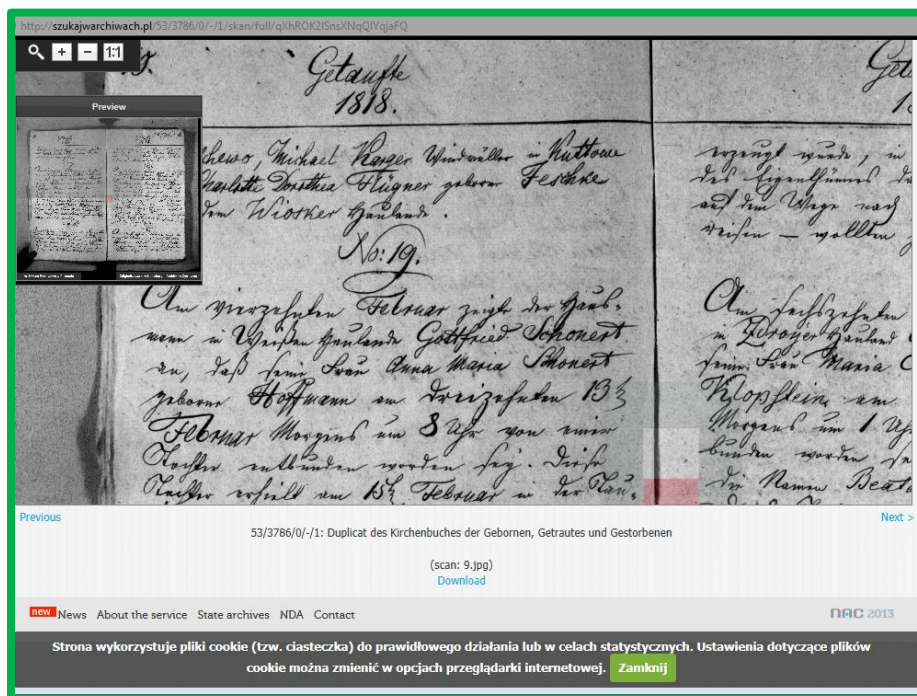 http://szukajwarchiwach.pl/53/3786/0/-/1/skan/full/qXhROK2ISnsXNqQIYqjaFQ
1:1
Preview
Getaufte
1818.
Michael Karger Windmüller in Kuttowe
Charlotte Dorothea Flügner geborne Jeschke
dem Wiosker Hauland.
No: 19.
Am vierzehnten Februar zeigte der Haus-
mann in Weißen Haulande Gottfried Schonert
an, daß seine Frau Anna Maria Schonert
geborne Hoffmann am dreizehnten 13
Februar Morgens um 8 Uhr von einer
Tochter entbunden worden sey. Diese
Tochter erhielt am 15 Februar in der Tau-
erzeugt wurde, in
des Eigenthümers
auf dem Wege nach
reisen — wollten
Am sechszehnten
in Zdroyer Hauland
seine Frau Maria
Klopstein, am
Morgens um 1 Uhr
bunden worden
die Namen Beata
Previous
Next >
53/3786/0/-/1: Duplicat des Kirchenbuches der Gebornen, Getrautes und Gestorbenen
(scan: 9.jpg)
Download
new News About the service State archives NDA Contact
NAC 2013
Strona wykorzystuje pliki cookie (tzw. ciasteczka) do prawidłowego działania lub w celach statystycznych. Ustawienia dotyczące plików
cookie można zmienić w opcjach przeglądarki internetowej. Zamknij